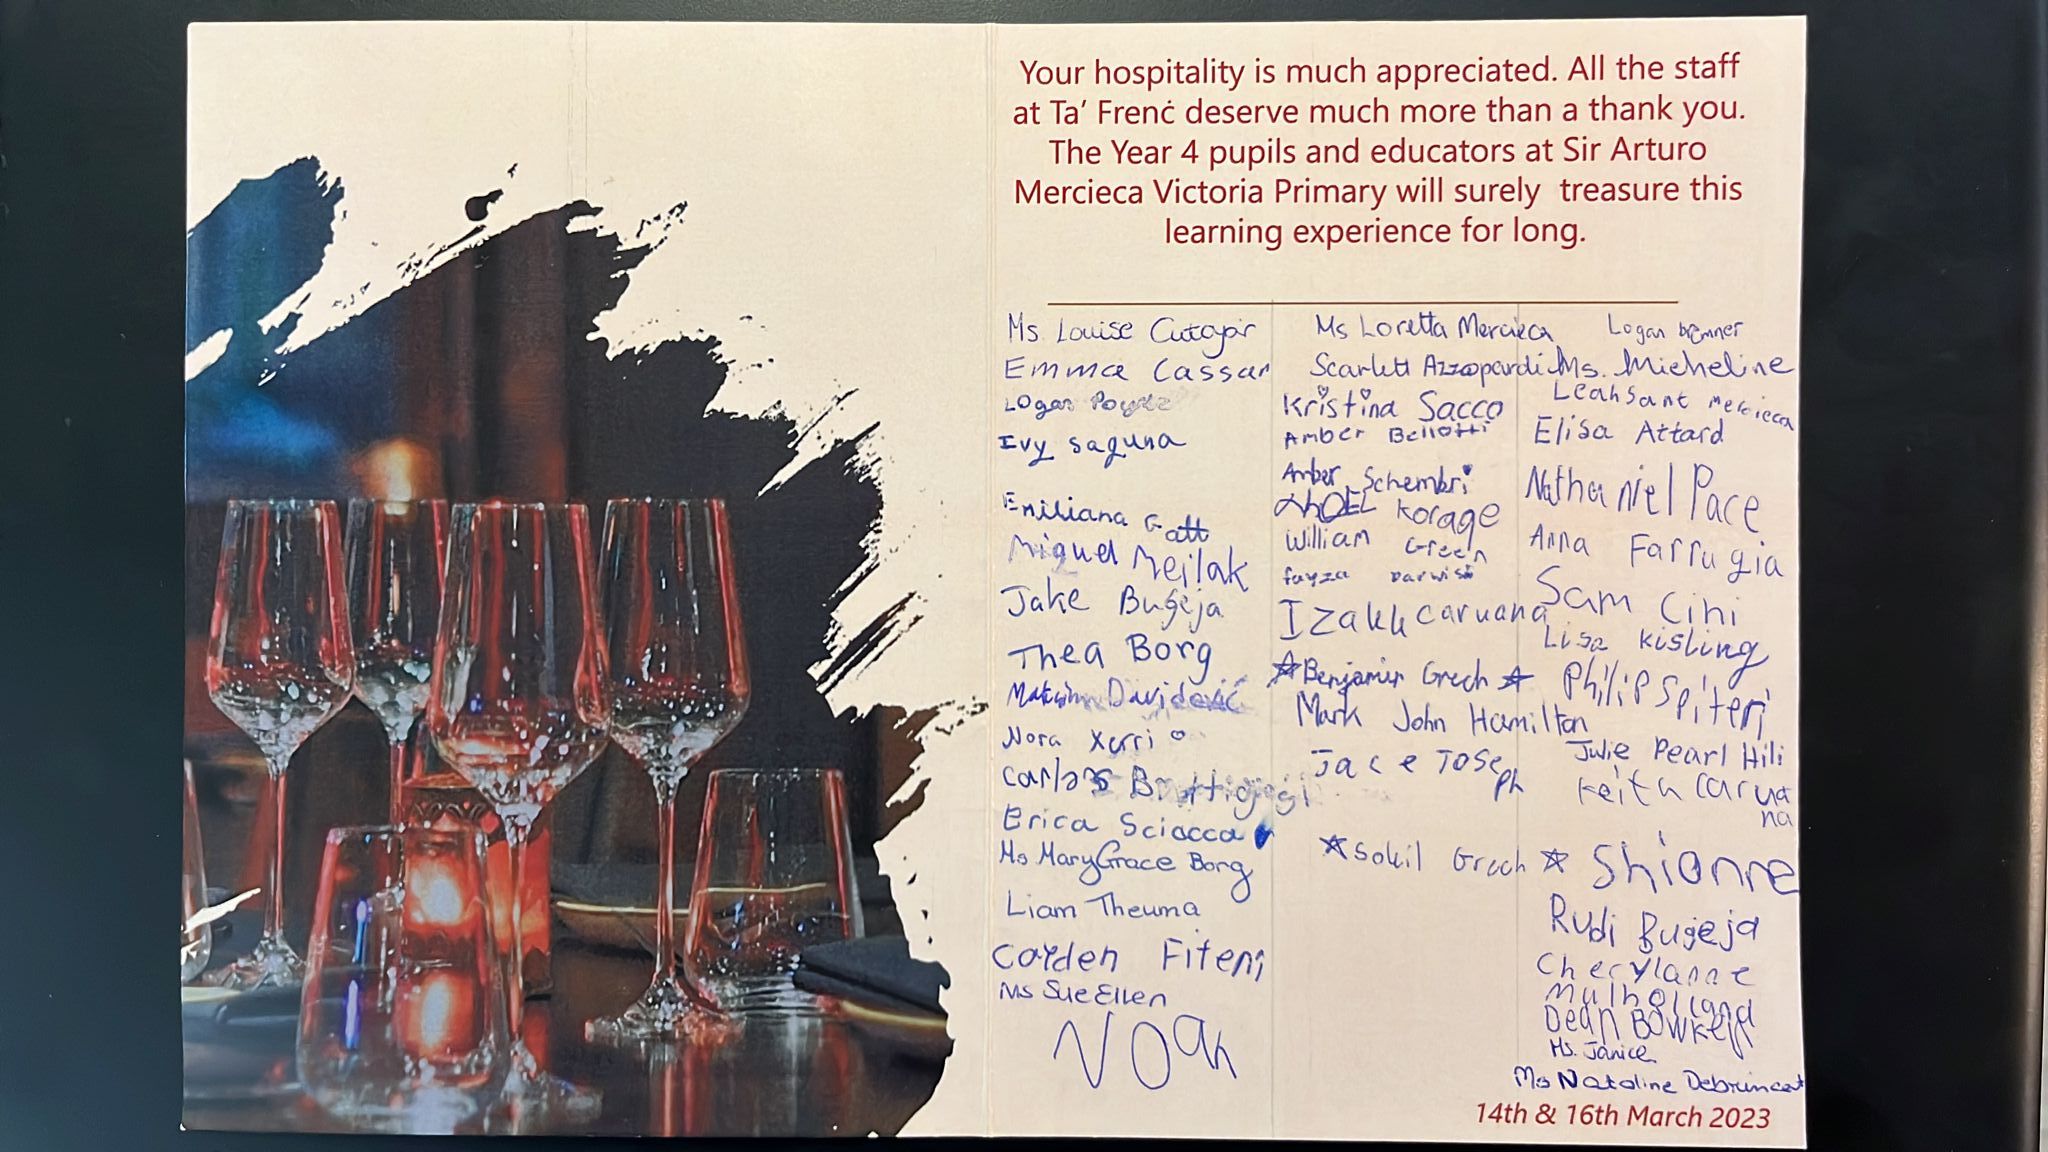 Your hospitality is much appreciated. All the staff
at Ta’ Frenċ deserve much more than a thank you.
The Year 4 pupils and educators at Sir Arturo
Mercieca Victoria Primary will surely treasure this
learning experience for long.
Ms Louise Cutajar
Emma Cassar
Logan
Ivy saguna
Emiliana Gatt
Miguel Meilak
Jake Bugeja
Thea Borg
Maksim Davidović
Nora Xerri
Carlos
Erica Sciacca
Ms MaryGrace Borg
Liam Theuma
Cayden Fiteni
Ms SueEllen
Noah
Ms Loretta Mercieca
Scarlett Azzopardi
Kristina Sacco
Amber Bellotti
Amber Schembri
Korage
William Green
fayza Darwish
Izakk caruana
Benjamin Grech
Mark John Hamilton
Jace Jose
ph
Grech
Logan bremner
Ms. Micheline
Leah Sant Mercieca
Elisa Attard
Nathaniel Pace
Anna Farrugia
Sam Cini
Lisa kisling
Philip Spiteri
Julie Pearl Hili
Keith Carua
na
Shianne
Rudi Bugeja
Cherylanne
Mulholland
Dean Bowker
Ms. Janice
Ms Nataline Debrincat
14th & 16th March 2023